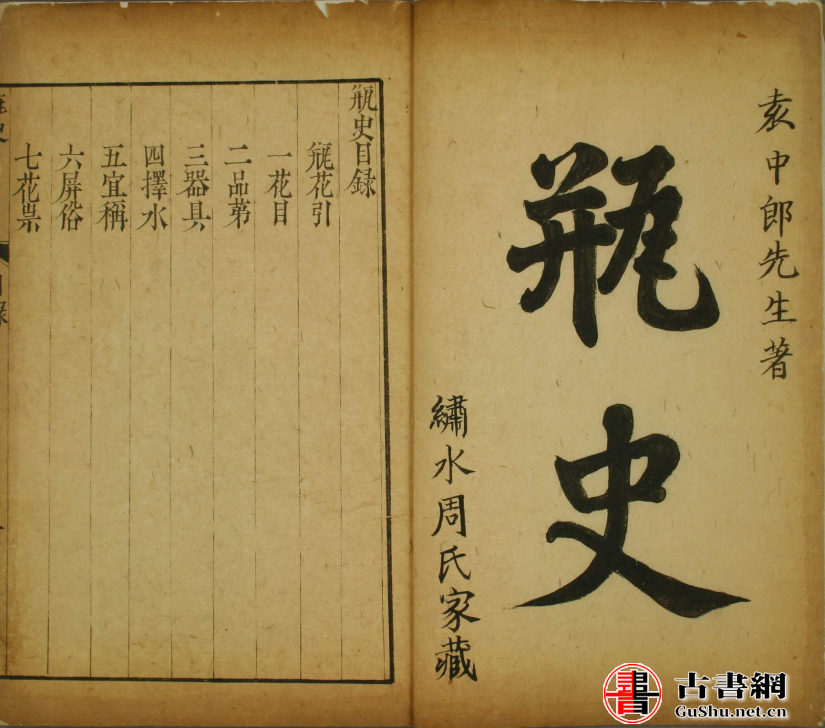 袁中郎先生著
瓶史
繡水周氏家藏
瓶史目録
瓶花引
一花目
二品苐
三器具
四擇水
五宜稱
六屏俗
七花祟
古書網
GuShu.net.cn